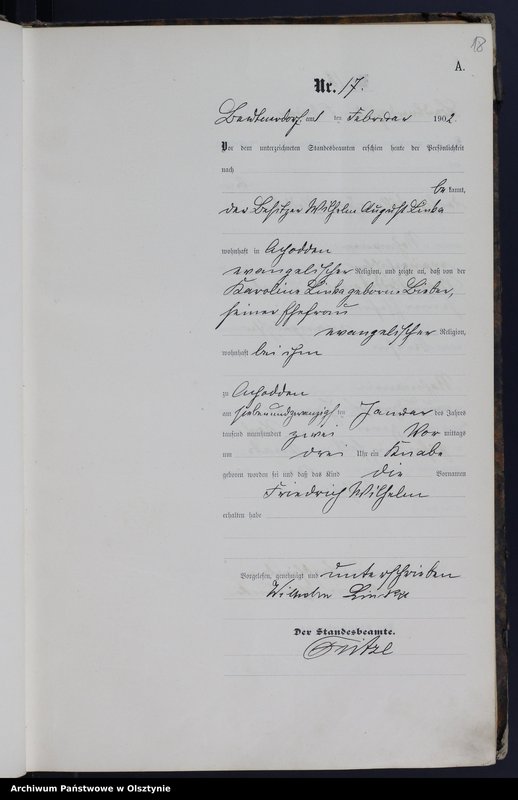 18
A.
Nr. 17.
am 1 ten Februar 1902.
Vor dem unterzeichneten Standesbeamten erschien heute der Persönlichkeit
nach
be kannt,
der Besitzer Wilhelm August Linka
wohnhaft in
evangelischer Religion, und zeigte an, daß von der
Karoline Linka geborne Bieber,
seiner Ehefrau
evangelischer Religion,
wohnhaft bei ihm
zu
am siebenundzwanzigsten ten Januar des Jahres
tausend neunhundert zwei Vor mittags
um drei Uhr ein Knabe
geboren worden sei und daß das Kind die Vornamen
Friedrich Wilhelm
erhalten habe
Vorgelesen, genehmigt und unterschrieben
Wilhelm
Der Standesbeamte.
Archiwum Państwowe w Olsztynie